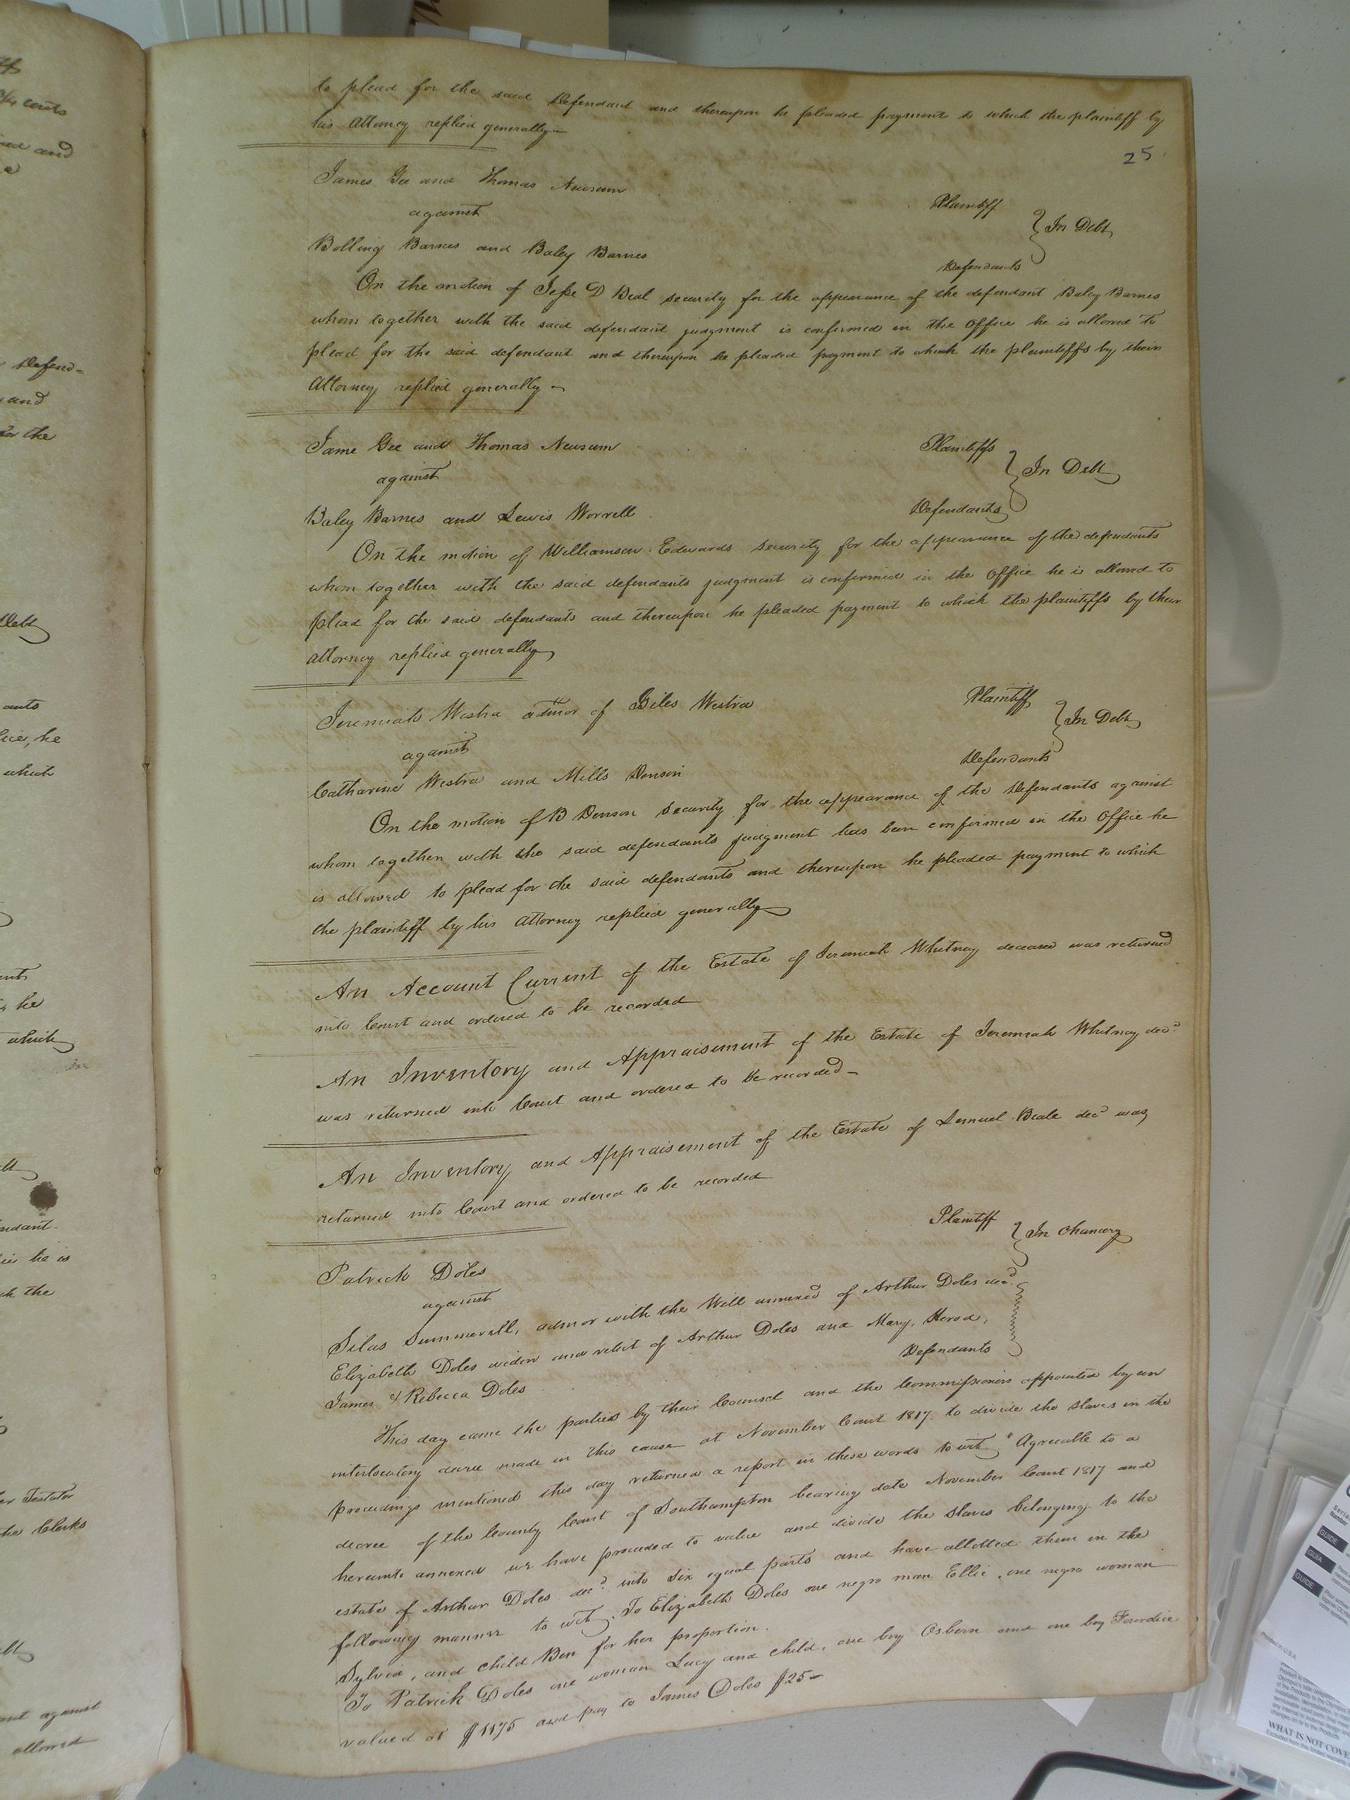 to plead for the said Defendant and thereupon he pleaded payment to which the plaintiff by
his Attorney replied generally
25
James Gee and Thomas Newsum Plaintiff
against In Debt
Bolling Barnes and Baley Barnes Defendants
On the motion of Jesse D Beal security for the appearance of the defendant Baley Barnes
whom together with the said defendant judgment is confirmed in the office he is allowed to
plead for the said defendant and thereupon he pleaded payment to which the plaintiffs by their
Attorney replied generally
Jame Gee and Thomas Newsum Plaintiffs
against In Debt
Baley Barnes and Lewis Worrell Defendants
On the motion of Williamson Edwards security for the appearance of the defendants
whom together with the said defendants judgment is confirmed in the office he is allowed to
plead for the said defendants and thereupon he pleaded payment to which the plaintiffs by their
attorney replied generally
Jeremiah Westra admor of Giles Westra Plaintiff
against In Debt
Catharine Westra and Mills Denson Defendants
On the motion of B Denson security for the appearance of the Defendants against
whom together with the said defendants judgment has been confirmed in the Office he
is allowed to plead for the said defendants and thereupon he pleaded payment to which
the plaintiff by his Attorney replied generally
An Account Current of the Estate of Jeremiah Whitney deceased was returned
into Court and ordered to be recorded
An Inventory and Appraisement of the Estate of Jeremiah Whitney decd
was returned into Court and ordered to be recorded
An Inventory and Appraisement of the Estate of Lemuel Beale decd was
returned into Court and ordered to be recorded
Plaintiff In Chancery
Patrick Doles
against
Silas Summerell, admor with the Will annexed of Arthur Doles decd
Elizabeth Doles widow and relict of Arthur Doles and Mary, Herod,
James & Rebecca Doles Defendants
This day came the parties by their Counsel and the Commissioners appointed by an
interlocutory decree made in this cause at November Court 1817 to divide the slaves in the
proceedings mentioned this day returned a report in these words to wit "Agreeable to a
decree of the County Court of Southampton bearing date November Court 1817 and
hereunto annexed we have proceeded to value and divide the slaves belonging to the
estate of Arthur Doles decd into six equal parts and have allotted them in the
following manner to wit, To Elizabeth Doles one negro man Ellic, one negro woman
Sylvia, and child Ben for her proportion.
To Patrick Doles one woman Lucy and child, one boy Osborn and one boy
valued at $1175 and pay to James Doles $25